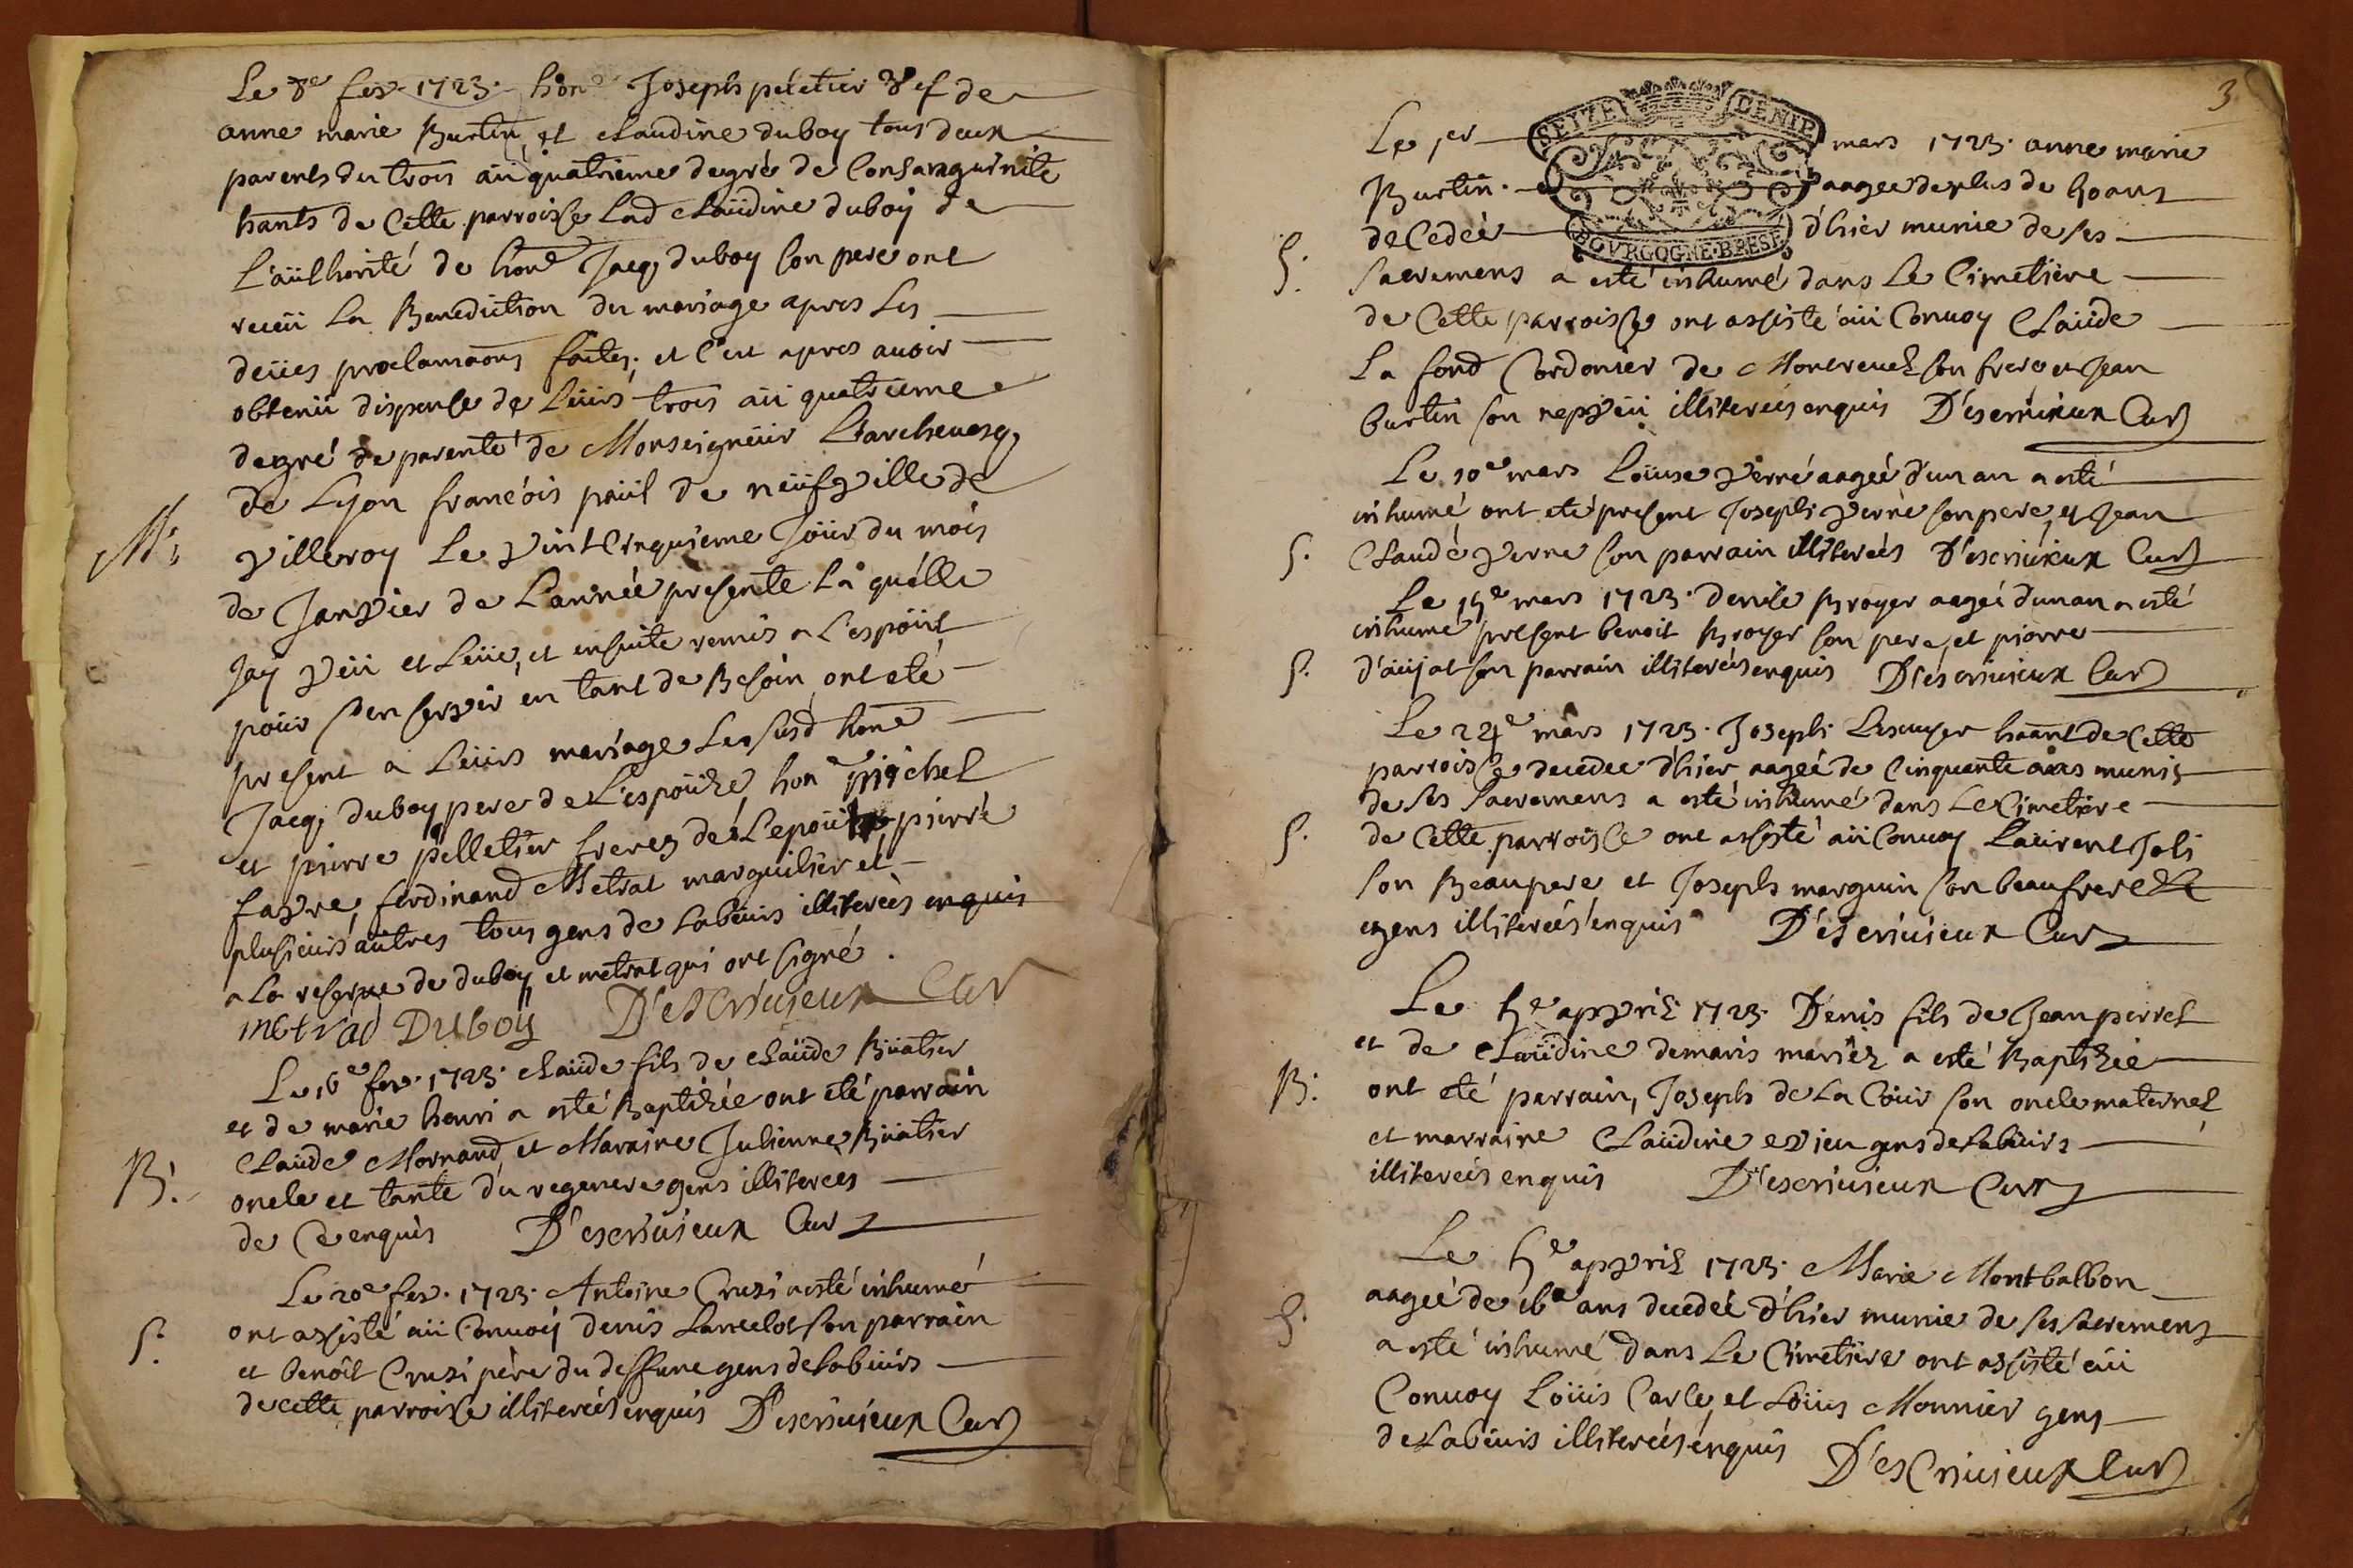 Le 8e fev. 1723. hone Joseph peletier vef de
anne marie Burtin, et claudine duboy tous deux
parents du trois aü quatrieme degré de Consanguinite
hants de Cette parroisse Lad Claüdine duboy de
L'aüthorité de hone Jacq, duboy son pere ont
receü La Benediction du mariage apres Les
deües proclamaons faites, et c'eut apres auoir
obtenü dispense de Leürs trois aü quatrieme
degré de parenté de Monseigneür L'archeuesq,
de Lyon francóis paül de neüfville de
M. villeroy Le vintCinquieme Joür du mois
de Janvier de L'année presente La quélle
Jaÿ veü et Leüe, et ensuite remis a L'espoüx
poür s'en servir en tant de Besoin, ont eté
present a Leürs mariage Les susd hone
Jacq, duboy pere de L'espoüze, hone Michel
et pierre pelletier freres de L'epoüx pierre
favre, ferdinand Metrat marguilier et
plusieürs aütres tous gens de Labeürs illiterées enquis
a La reserve de duboy et metrat qui ont signé.
metrad Duboÿ D'escriuieux Cur
Le 16e fev. 1723. claüde fils de claüde Büatier
et de marie henri a esté Baptizée ont eté parrain
Claüde Mornand, et Maraine Julienne Büatier
B. oncle et tante du regenere gens illiterées
de Ce enquis D'escriuieux Cur
Le 20e fev. 1723. Antoine Cruzi a esté inhumé
S. ont assisté aü Conuoÿ denis Lancelot son parrain
et benoît Cruzi père du deffunc gens de Labeürs
de cette parroisse illiterées enquis D'escriuieux Cur
3
SEYZE DENIE
BOVRGOGNE·BRESE
Le 1er mars 1723. anne marie
Burtin aagee de plus de 50 ans
decedeé d'hier munie de ses
S. sacremens a esté inhumé dans Le Cimetiere
de Cette parroisse ont assisté aü Conuoy Claüde
La fond Cordonier de Montreuel son frere et Jean
burtin son nepveü illitereés enquis D'escriuieux Cur
Le 10e mars Loüise verné aageé d'un an a esté
inhumé, ont eté present Joseph verne son pere, et Jean
S. Claude verne son parrain illitereés D'escriuieux Cur
Le 15e mars 1723. denise Broyer aageé dun an a esté
inhume present benoit Broyer son pere, et pierre
S. d'aujat son parrain illitereés enquis D'escriuieux Cur
Le 24e mars 1723. Joseph Lescuyer haant de Cette
parroisse decedee d'hier aageé de Cinquante ans munis
de ses sacremens a esté inhumé dans Le Cimetiere
S. de Cette parroisse ont assisté aü Conuoy Laürent Joli
son Beaupere et Joseph marguin son beaufrere
gens illitereés enquis D'escriuieux Cur
Le 5e apvril 1723. Denis fils de Jean perret
et de Claüdine demaris mariéz a esté Baptizée
B. ont eté parrain, Joseph de La Coür son oncle maternel
et marraine Claüdine evieu gens de Labeürs
illitereés enquis D'escriuieux Cur
Le 5e apvril 1723. Marie Montbalbon
S. aageé de 16 ans decedeé d'hier munie de ses sacremens
a esté inhumé dans Le Cimetiere ont assisté aü
Conuoy Loüis Carle, et Loüis Monnier gens
de Labeürs illitereés enquis D'escriuieux Cur